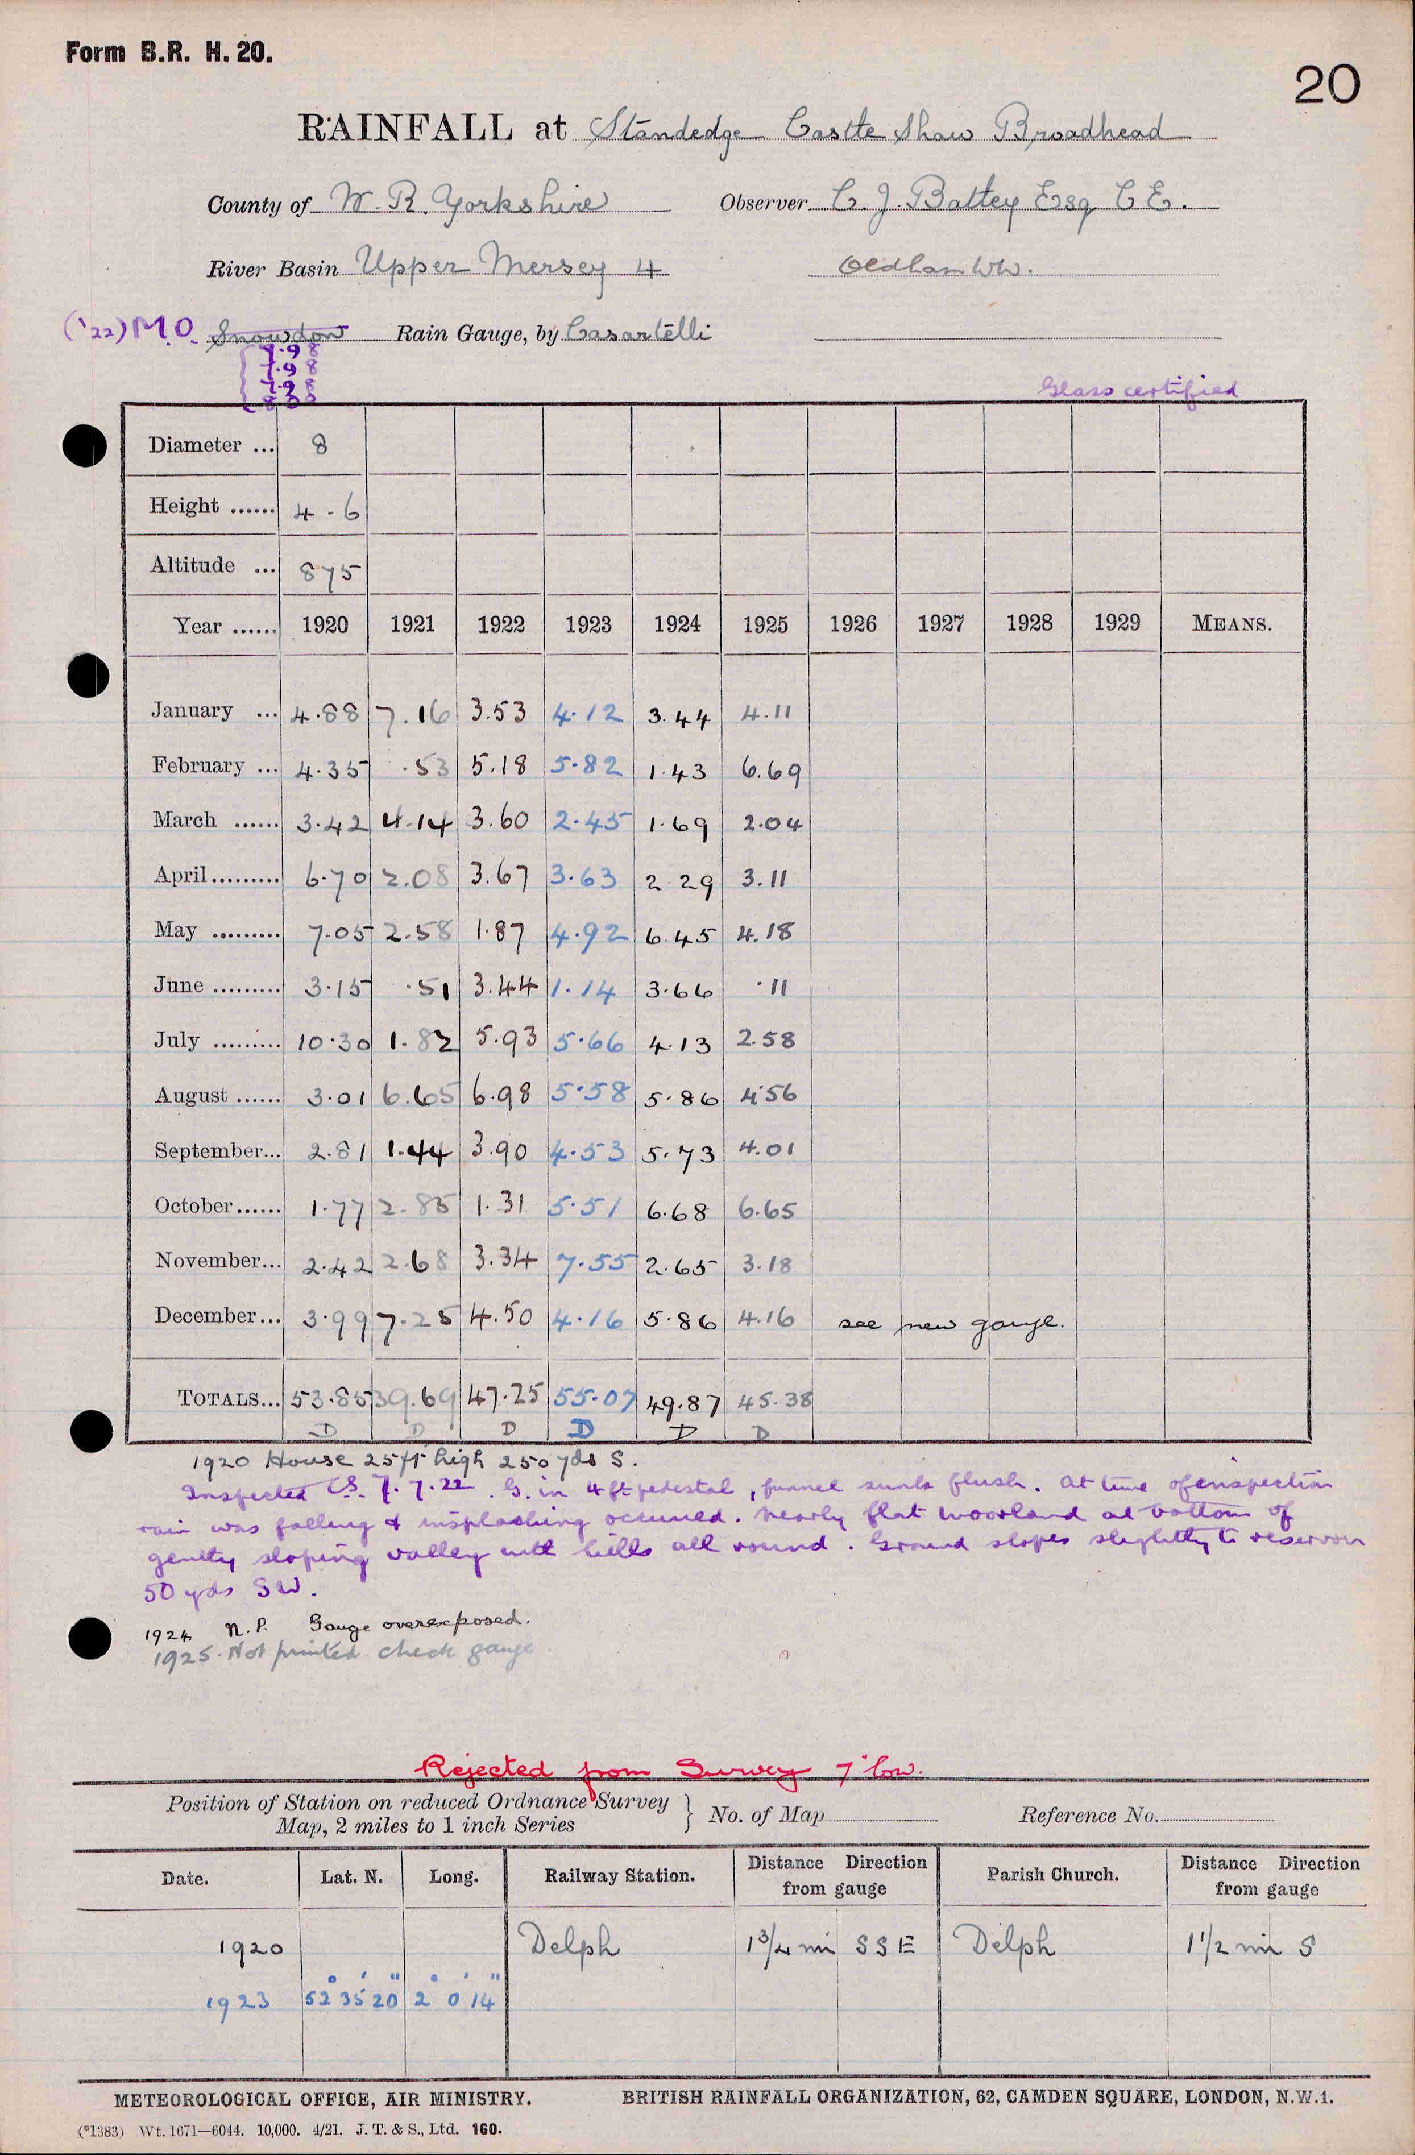 Form B.R. H. 20.
20
RAINFALL at Standedge Castle Shaw Broadhead
County of W. R. Yorkshire Observer C. J. Battey Esq C E.
River Basin Upper Mersey 4 Oldham WW.
('22) M.O. Snowdon Rain Gauge, by Casartelli
7.98
7.98
7.98
8.00
Glass certified
Diameter ... 8
Height ...... 4 - 6
Altitude ... 875
Year ...... 1920 1921 1922 1923 1924 1925 1926 1927 1928 1929 MEANS.
January ... 4.88 7.16 3.53 4.12 3.44 4.11
February ... 4.35 .53 5.18 5.82 1.43 6.69
March ...... 3.42 4.14 3.60 2.45 1.69 2.04
April ......... 6.70 2.08 3.67 3.63 2 29 3.11
May ......... 7.05 2.58 1.87 4.92 6.45 4.18
June ......... 3.15 .51 3.44 1.14 3.66 .11
July ......... 10.30 1.82 5.93 5.66 4.13 2.58
August ...... 3.01 6.65 6.98 5.58 5.86 4.56
September... 2.81 1.44 3.90 4.53 5.73 4.01
October...... 1.77 2.85 1.31 5.51 6.68 6.65
November... 2.42 2.68 3.34 7.55 2.65 3.18
December... 3.99 7.25 4.50 4.16 5.86 4.16 see new gauge.
TOTALS... 53.85 39.69 47.25 55.07 49.87 45.38
D D D D D D
1920 House 25ft high 250 yds S.
Inspected C.S. 7.7.22. G. in 4 ft pedestal, funnel sunk flush. At time of inspection
rain was falling & insplashing occurred. Nearly flat moorland at bottom of
gently sloping valley with hills all round. Ground slopes slightly to reservoir
50 yds SW.
1924 N.P. Gauge overexposed.
1925. Not printed check gauge
Rejected from Survey 7" low.
Position of Station on reduced Ordnance Survey Map, 2 miles to 1 inch Series } No. of Map Reference No.
Date. Lat. N. Long. Railway Station. Distance Direction from gauge Parish Church. Distance Direction from gauge
1920 Delph 1 3/4 mi SSE Delph 1 1/2 mi S
1923 52° 35' 20" 2° 0' 14"
METEOROLOGICAL OFFICE, AIR MINISTRY. BRITISH RAINFALL ORGANIZATION, 62, CAMDEN SQUARE, LONDON, N.W.1.
(*1383) Wt. 1671—6044. 10,000. 4/21. J. T. & S., Ltd. 160.